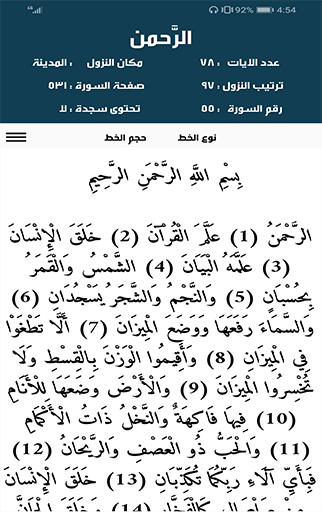 4G 92% 4:54
الرَّحمن
عدد الايات : ٧٨ مكان النزول : المدينة
ترتيب النزول : ٩٧ صفحة السورة : ٥٣١
رقم السورة : ٥٥ تحتوي سجدة : لا
نوع الخط حجم الخط
بِسْمِ اللَّهِ الرَّحْمَنِ الرَّحِيمِ
الرَّحْمَنُ (1) عَلَّمَ الْقُرْآنَ (2) خَلَقَ الْإِنْسَانَ
(3) عَلَّمَهُ الْبَيَانَ (4) الشَّمْسُ وَالْقَمَرُ
بِحُسْبَانٍ (5) وَالنَّجْمُ وَالشَّجَرُ يَسْجُدَانِ (6)
وَالسَّمَاءَ رَفَعَهَا وَوَضَعَ الْمِيزَانَ (7) أَلَّا تَطْغَوْا
فِي الْمِيزَانِ (8) وَأَقِيمُوا الْوَزْنَ بِالْقِسْطِ وَلَا
تُخْسِرُوا الْمِيزَانَ (9) وَالْأَرْضَ وَضَعَهَا لِلْأَنَامِ
(10) فِيهَا فَاكِهَةٌ وَالنَّخْلُ ذَاتُ الْأَكْمَامِ
(11) وَالْحَبُّ ذُو الْعَصْفِ وَالرَّيْحَانُ (12)
فَبِأَيِّ آلَاءِ رَبِّكُمَا تُكَذِّبَانِ (13) خَلَقَ الْإِنْسَانَ
مِنْ صَلْصَالٍ كَالْفَخَّارِ (14) وَخَلَقَ الْجَانَّ